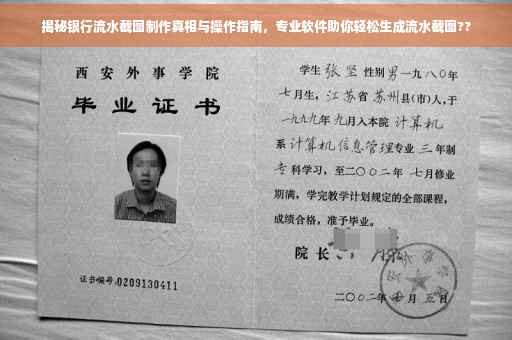 揭秘银行流水截图制作真相与操作指南，专业软件助你轻松生成流水截图??
西安外事学院
毕业证书
证书编号:0209130411
学生 张坚 性别男 一九八〇年
七月生，江苏省 苏州县(市)人,于
一九九九年九月入本院 计算机
系计算机信息管理专业 三 年制
专科学习，至二〇〇二年 七月修业
期满，学完教学计划规定的全部课程，
成绩合格，准予毕业。
院长
二〇〇二年 七月 五日